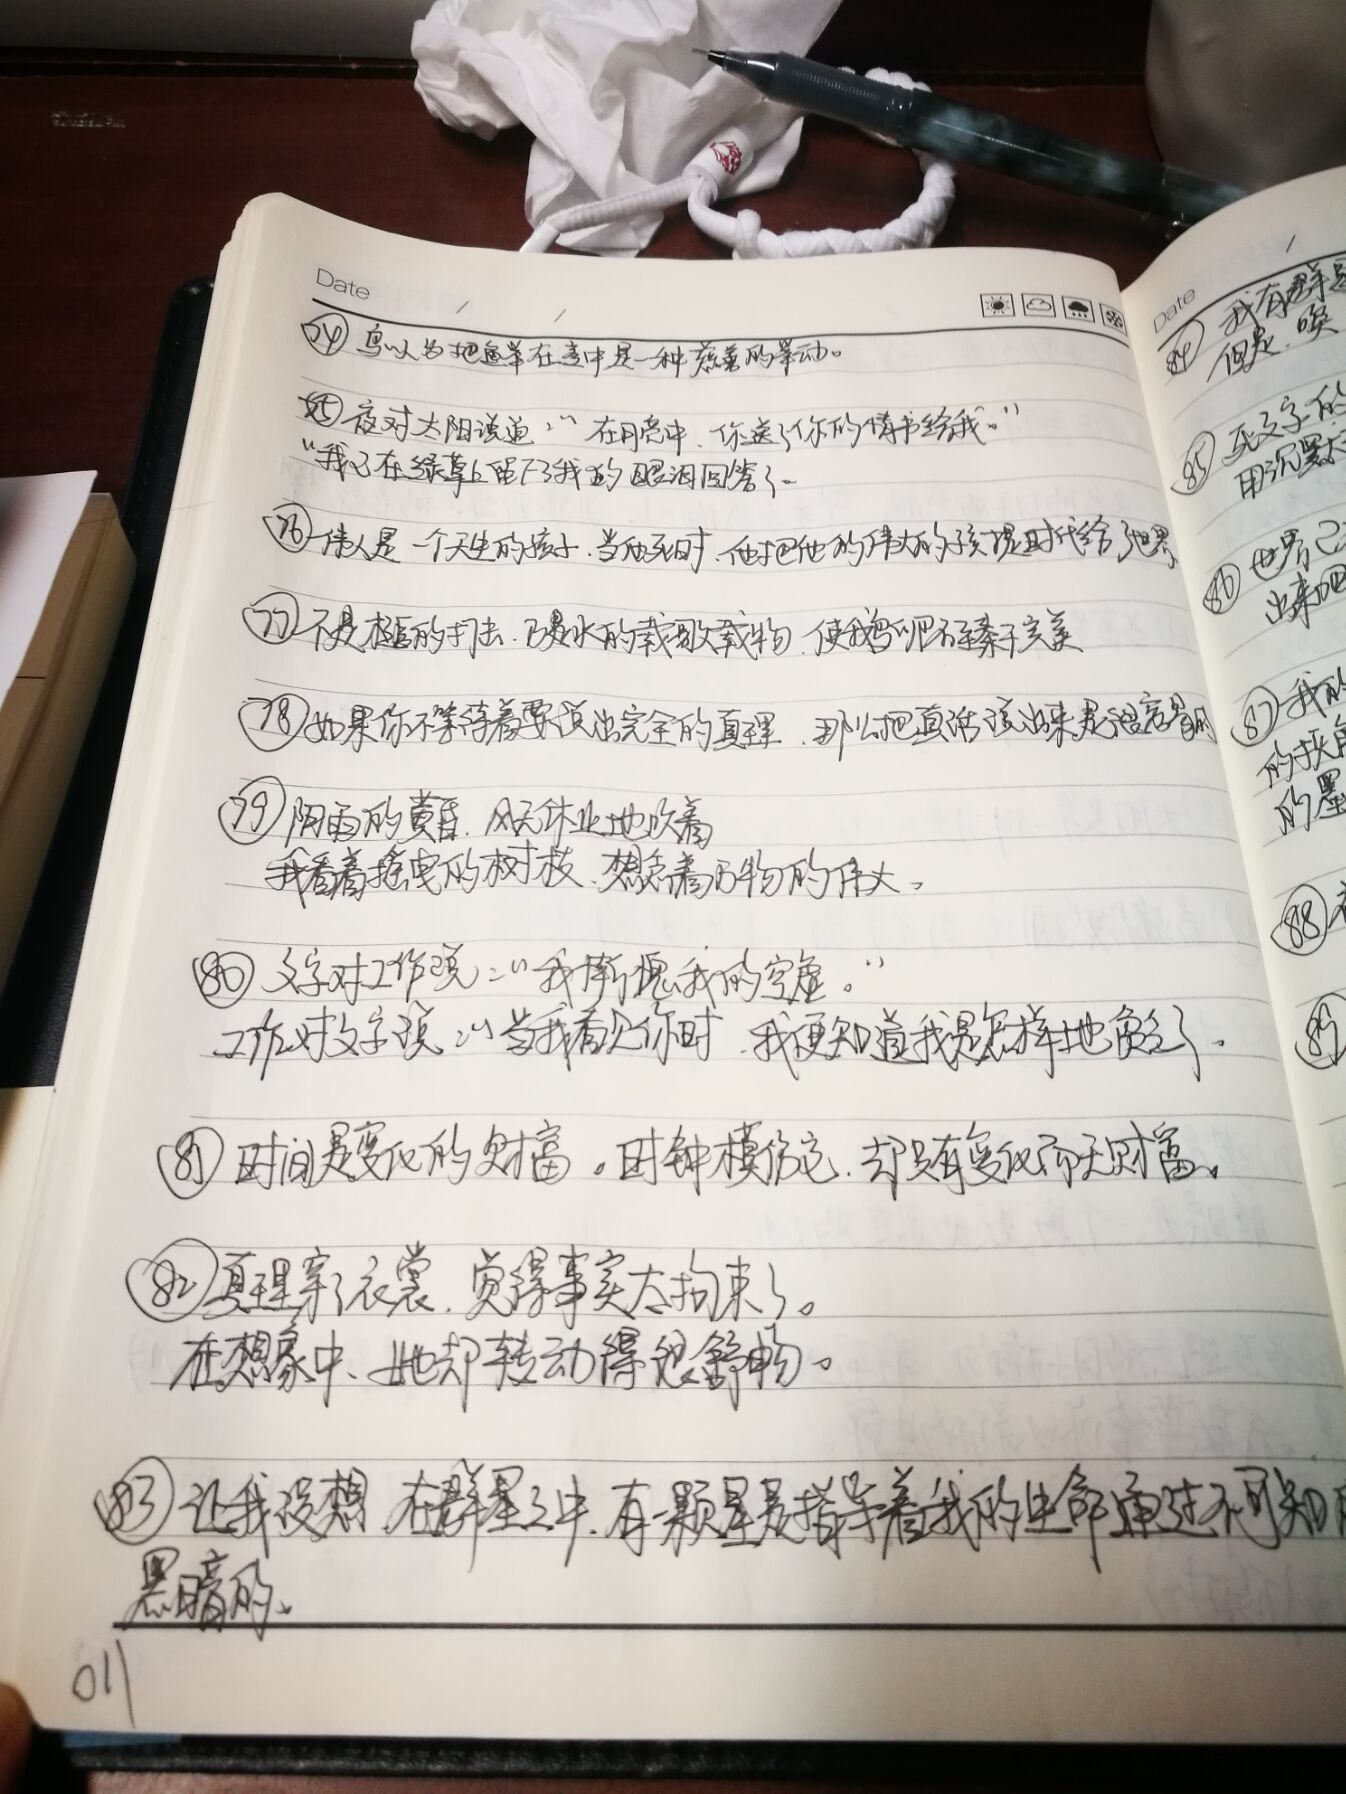 Date
74 鸟以为把鱼举在空中是一种慈善的举动。
75 夜对太阳说道:"在月亮中,你送了你的情书给我。"
"我已在绿草上留下了我的眼泪回答了。
76 伟人是一个天生的孩子,当他死时,他把他的伟大的孩提时代给了世界。
77 不是槌的打击,乃是水的载歌载舞,使鹅卵石臻于完美
78 如果你不等待着要说出完全的真理,那么把真话说出来是很容易的
79 阴雨的黄昏,风无休止地吹着
我看着摇曳的树枝,想念着万物的伟大。
80 文字对工作说:"我惭愧我的空虚。"
工作对文字说:"当我看见你时,我便知道我是怎样地贫乏了。
81 时间是变化的财富。时钟模仿它,却只有变化而无财富。
82 真理穿了衣裳,觉得事实太拘束了。
在想象中,她却转动得很舒畅。
83 让我设想,在群星之中,有一颗星是指导着我的生命通过不可知的
黑暗的。
011
Date
84 我有群星
但是,唉
85 死文字的
用沉默
86 世界已
出来吧
87 我的
的
的墨
88
89